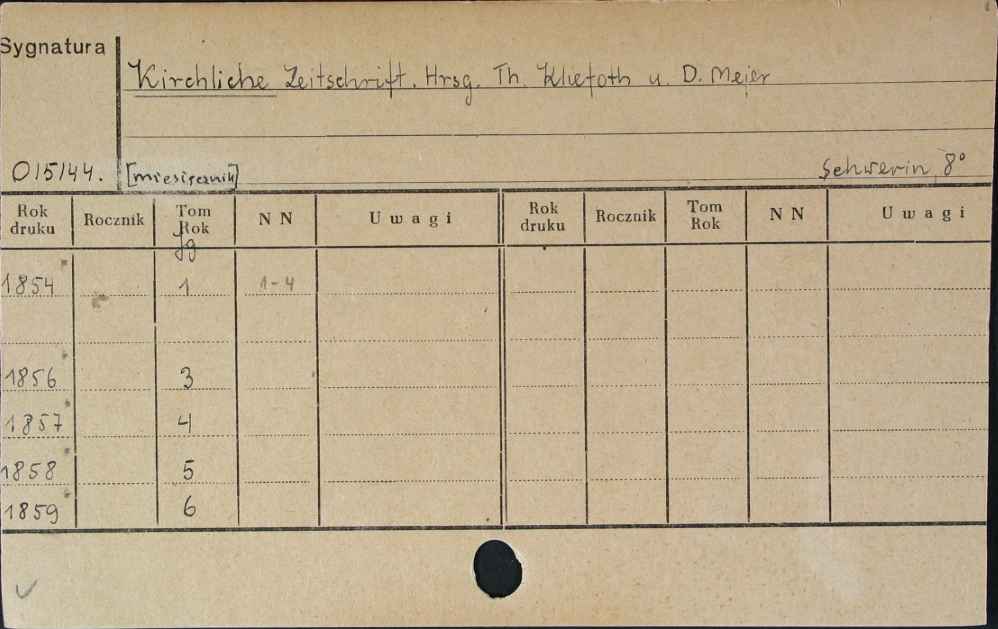 Sygnatura
Kirchliche Zeitschrift. Hrsg. Th. Kliefoth u. D. Mejer
015144. [miesięcznik] Schwerin, 8°
Rok druku Rocznik Tom Rok Jg N N Uwagi Rok druku Rocznik Tom Rok N N Uwagi
1854 1 1-4
1856 3
1857 4
1858 5
1859 6